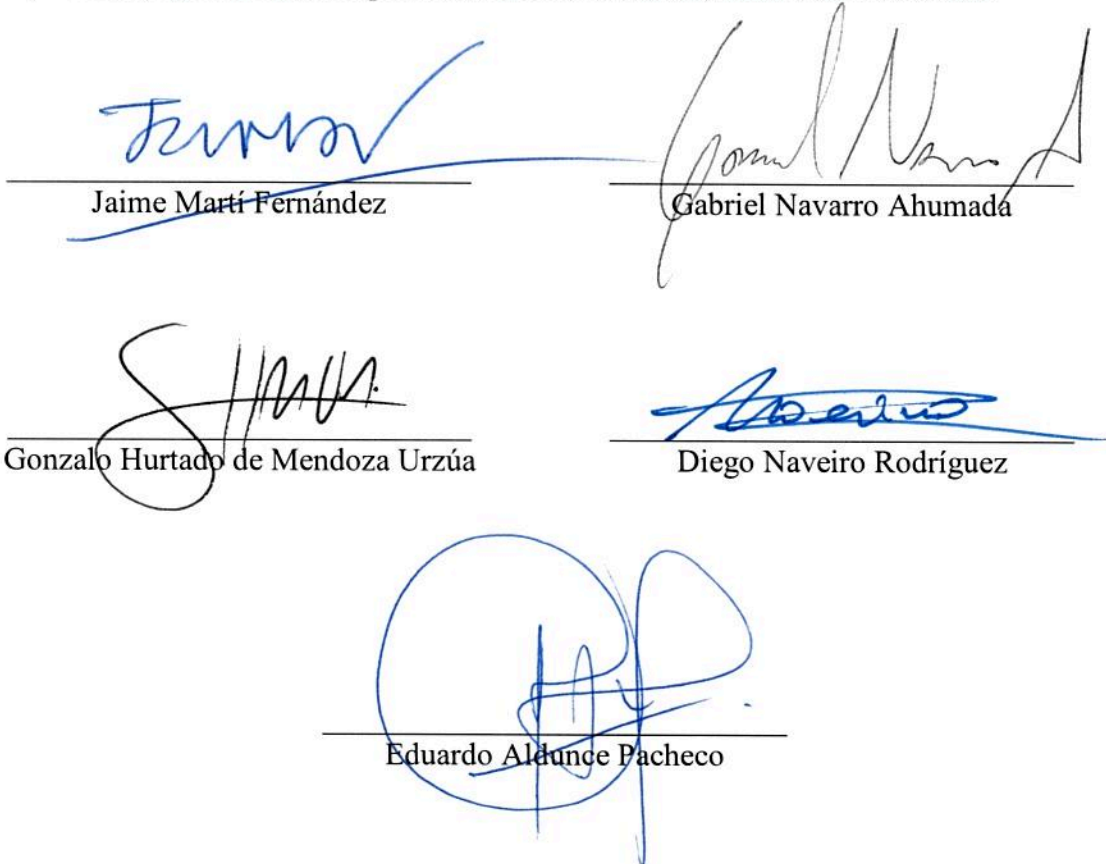 Jaime Martí Fernández
Gabriel Navarro Ahumada
Gonzalo Hurtado de Mendoza Urzúa
Naveiro
Diego Naveiro Rodríguez
Eduardo Aldunce Pacheco